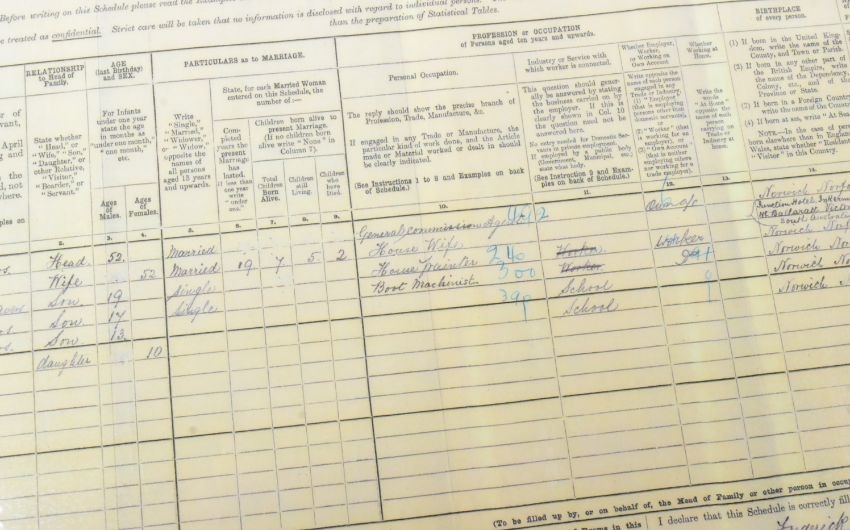 Before writing on this Schedule please read the
be treated as confidential. Strict care will be taken that no information is disclosed with regard to individual persons.
than the preparation of Statistical Tables.
RELATIONSHIP
to Head of
Family.
AGE
(last Birthday)
and SEX.
PARTICULARS as to MARRIAGE.
PROFESSION or OCCUPATION
of Persons aged ten years and upwards.
BIRTHPLACE
of every person.
State whether
"Head," or
"Wife," "Son,"
"Daughter," or
other Relative,
"Visitor,"
"Boarder," or
"Servant."
For Infants
under one year
state the age
in months as
"under one month,"
"one month,"
etc.
Ages
of
Males.
Ages
of
Females.
Write
"Single,"
"Married,"
"Widower,"
or "Widow,"
opposite the
names of
all persons
aged 15 years
and upwards.
State, for each Married Woman
entered on this Schedule, the
number of:—
Completed
years the
present
Marriage
has
lasted.
If less than
one year
write
"under
one."
Children born alive to
present Marriage.
(If no children born
alive write "None" in
Column 7).
Total
Children
Born
Alive.
Children
still
Living.
Children
who
have
Died.
Personal Occupation.
The reply should show the precise branch of
Profession, Trade, Manufacture, &c.
If engaged in any Trade or Manufacture, the
particular kind of work done, and the Article
made or Material worked or dealt in should
be clearly indicated.
(See Instructions 1 to 8 and Examples on back
of Schedule.)
Industry or Service with
which worker is connected.
This question should generally
be answered by stating
the business carried on by
the employer. If this is
clearly shown in Col. 10
the question need not be
answered here.
No entry needed for Domestic Servants
in private employment.
If employed by a public body
(Government, Municipal, etc.)
state what body.
(See Instruction 9 and Examples
on back of Schedule.)
Whether Employer,
Worker,
or Working on
Own Account.
Write opposite the
name of each person
engaged in any
Trade or Industry,
(1) "Employer"
(that is employing
persons other than
domestic servants),
(2) "Worker" (that
is working for an
employer), or
(3) "Own Account"
(that is neither
employing others
nor working for a
trade employer).
Whether
Working at
Home.
Write the
words
"At Home"
opposite the
name of each
person
carrying on
Trade or
Industry at
home.
(1) If born in the United Kingdom,
write the name of the
County, and Town or Parish.
(2) If born in any other part of
the British Empire, write
the name of the Dependency,
Colony, etc., and of the
Province or State.
(3) If born in a Foreign Country
write the name of the Country
(4) If born at sea, write "At Sea
NOTE.—In the case of persons
born elsewhere than in England
Wales, state whether "Resident
"Visitor" in this Country.
2. 3. 4. 5. 6. 7. 8. 9. 10. 11. 12. 13. 14.
Head 52 Married General Commission Agent Own a/c Norwich
Wife 52 Married 19 7 5 2 House Wife
Son 19 Single House Painter 240 Worker Worker Norwich
Son 17 Single Boot Machinist 300 Worker Norwich
Son 13 School Norwich
daughter 10 School Norwich
(To be filled up by, or on behalf of, the Head of Family or other person in
I declare that this Schedule is correctly